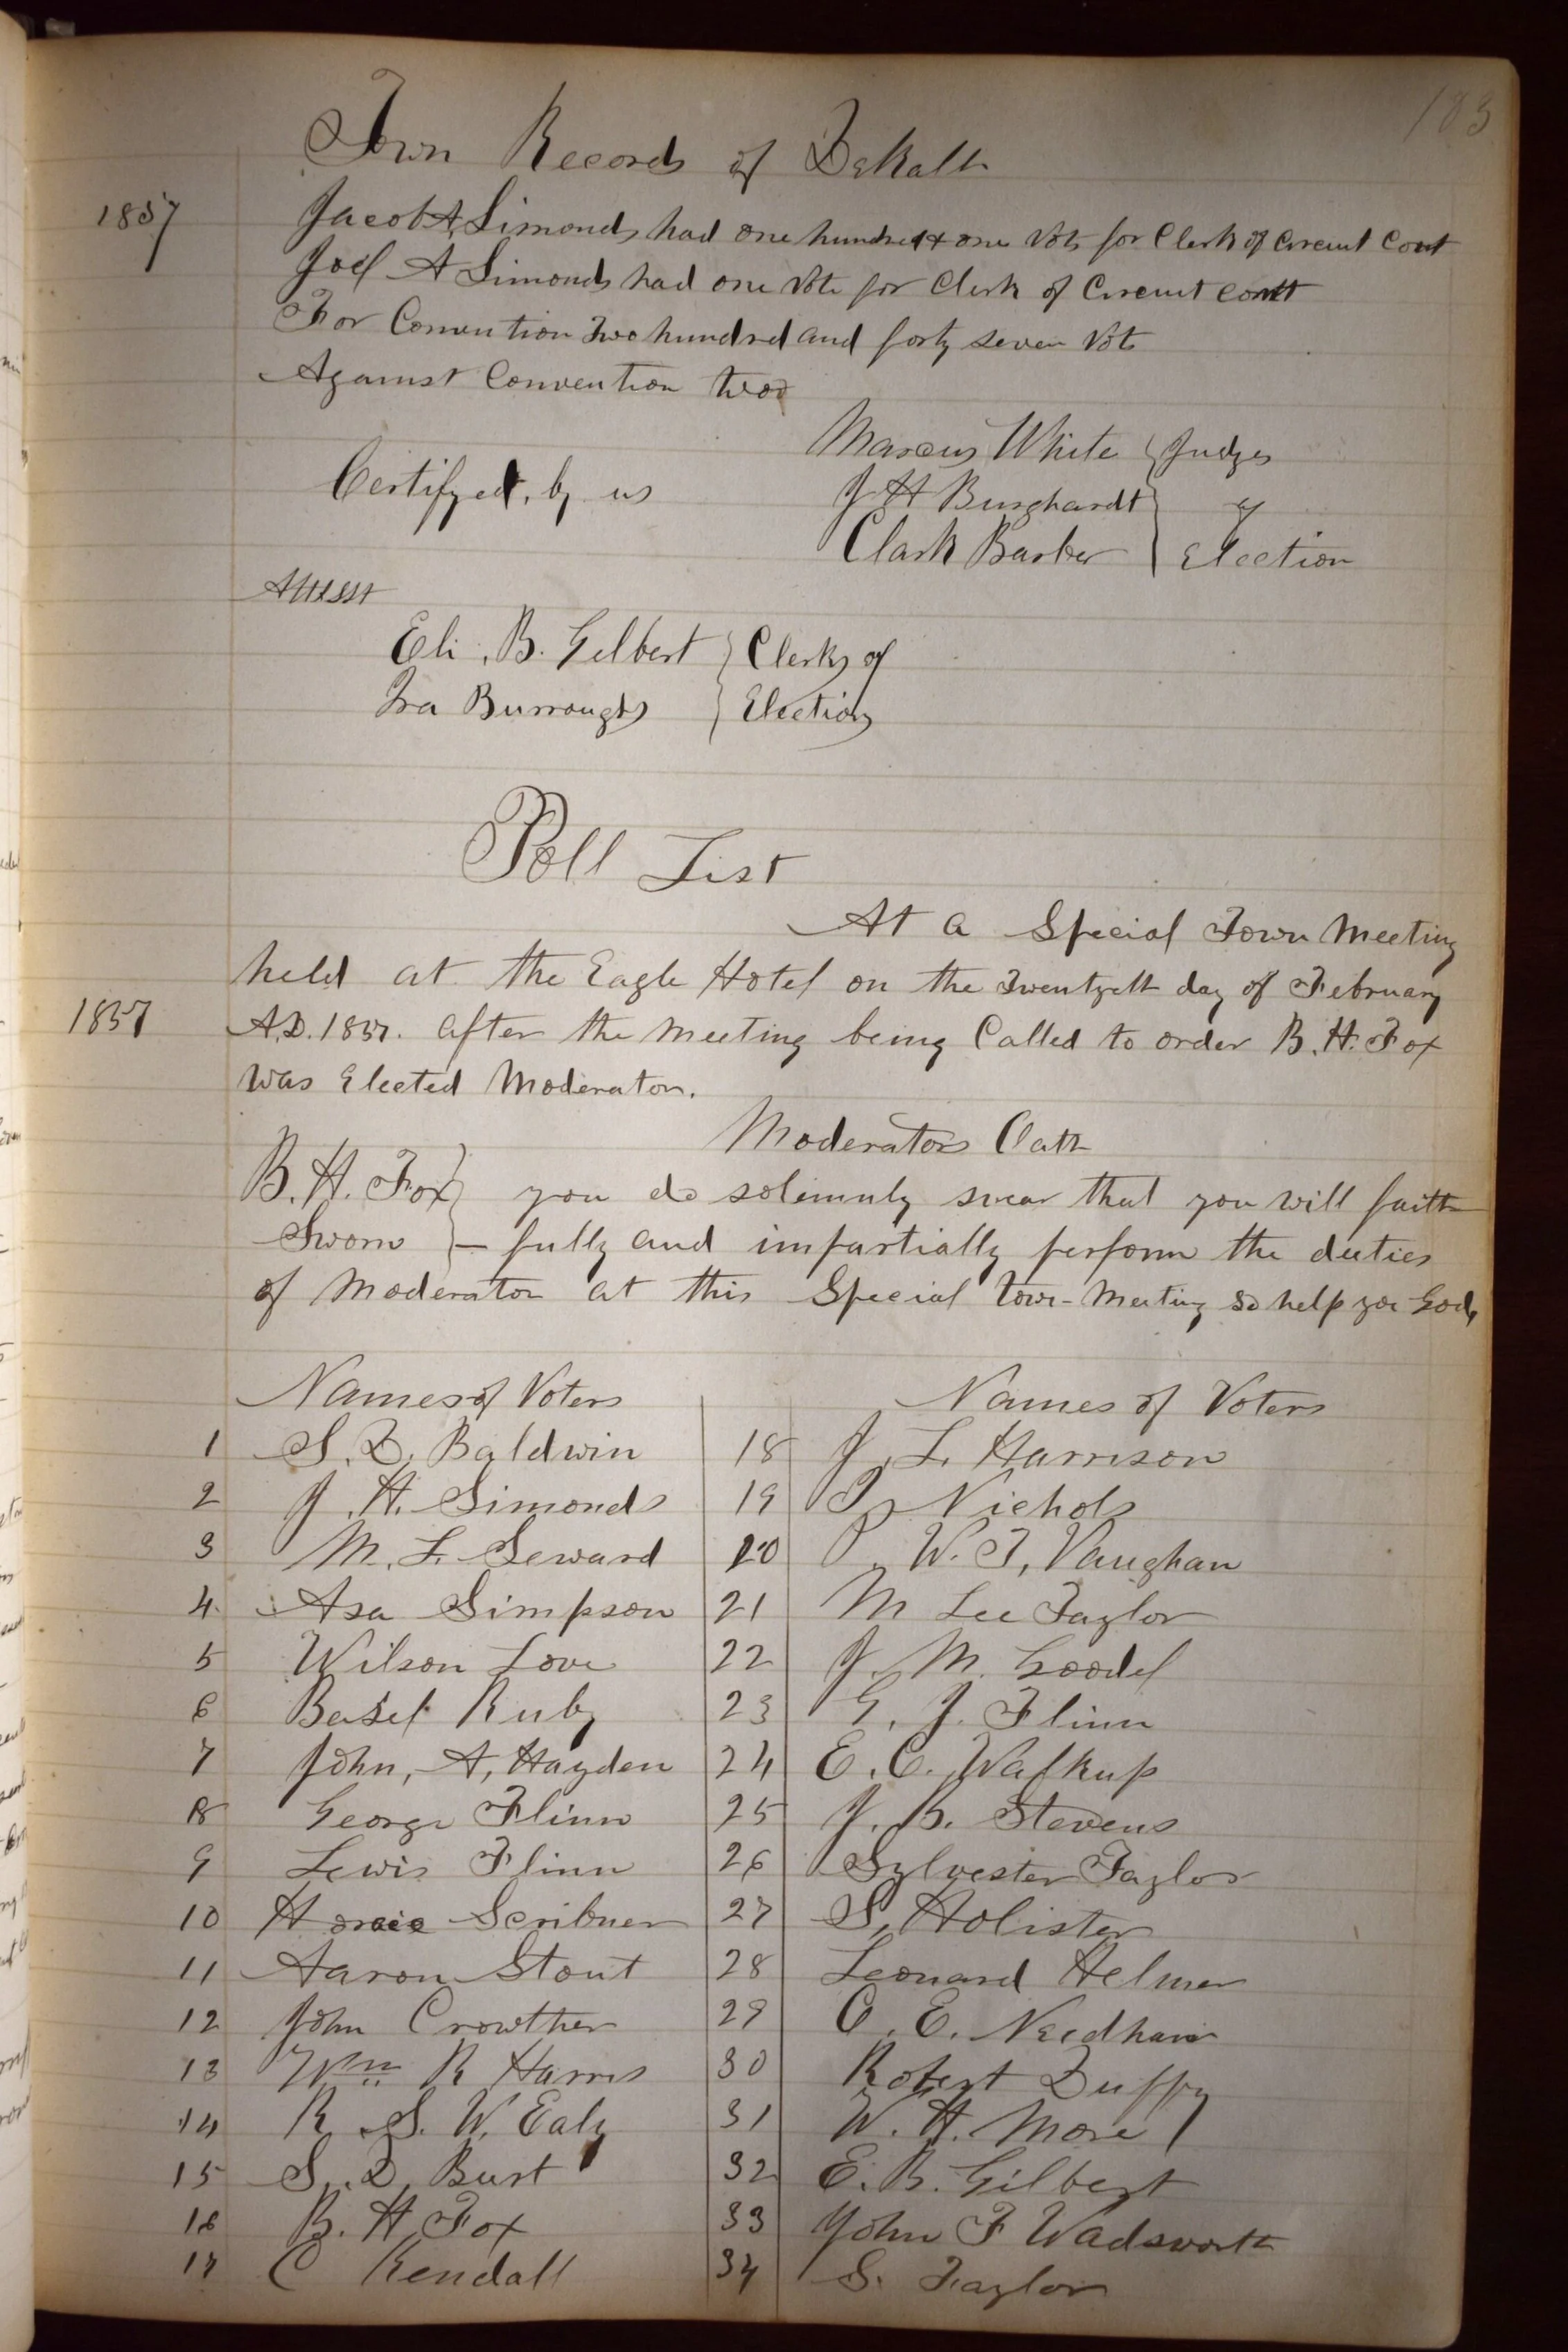 183
Town Records of DeKalb
1857
Jacob A, Simonds had one hundred & one Vots for Clerk of Circuit Court
Joel A Simonds had one Vote for Clerk of Circuit Court
For Convention Two hundred and forty seven Vots
Against Convention two
Marcus White } Judges
Certifyed, by us
J H Burghardt } of
Clark Barber } Election
Attesst
Eli, B. Gilbert } Clerks of
Ira Burroughs } Election
Poll List
At a Special Town Meeting
held at the Eagle Hotel on the Twentyeth day of February
1857 A.D. 1857. after the meeting being Called to order B. H. Fox
was Elected Moderator.
Moderators Oath
B. H. Fox } you do solemnly swear that you will faith
Sworn } - fully and impartially perform the duties
of Moderator at this Special Town-Meeting so help you God,
Names of Voters Names of Voters
1 S. D. Baldwin 18 J. L. Harrison
2 J. H. Simonds 19 Nichols
3 M. F. Seward 20 P. W. T, Vaughan
4 Asa Simpson 21 M Lee Taylor
5 Wilson Love 22 J. M. Goodel
6 Basel Ruby 23 G. J. Flinn
7 John, A, Hayden 24 E. C. Walkup
8 George Flinn 25 J. B. Stevens
9 Lewis Flinn 26 Sylvester Taylor
10 Horace Scribner 27 S, Holister
11 Aaron Stout 28 Leonard Helmer
12 John Crowther 29 C. E. Needham
13 Wm R Harris 30 Robert Duffy
14 R S. W. Ealy 31 W. H. More
15 S. D. Burt 32 E. B. Gilbert
16 B. H Fox 33 John F Wadsworth
17 C Kendall 34 S. Taylor